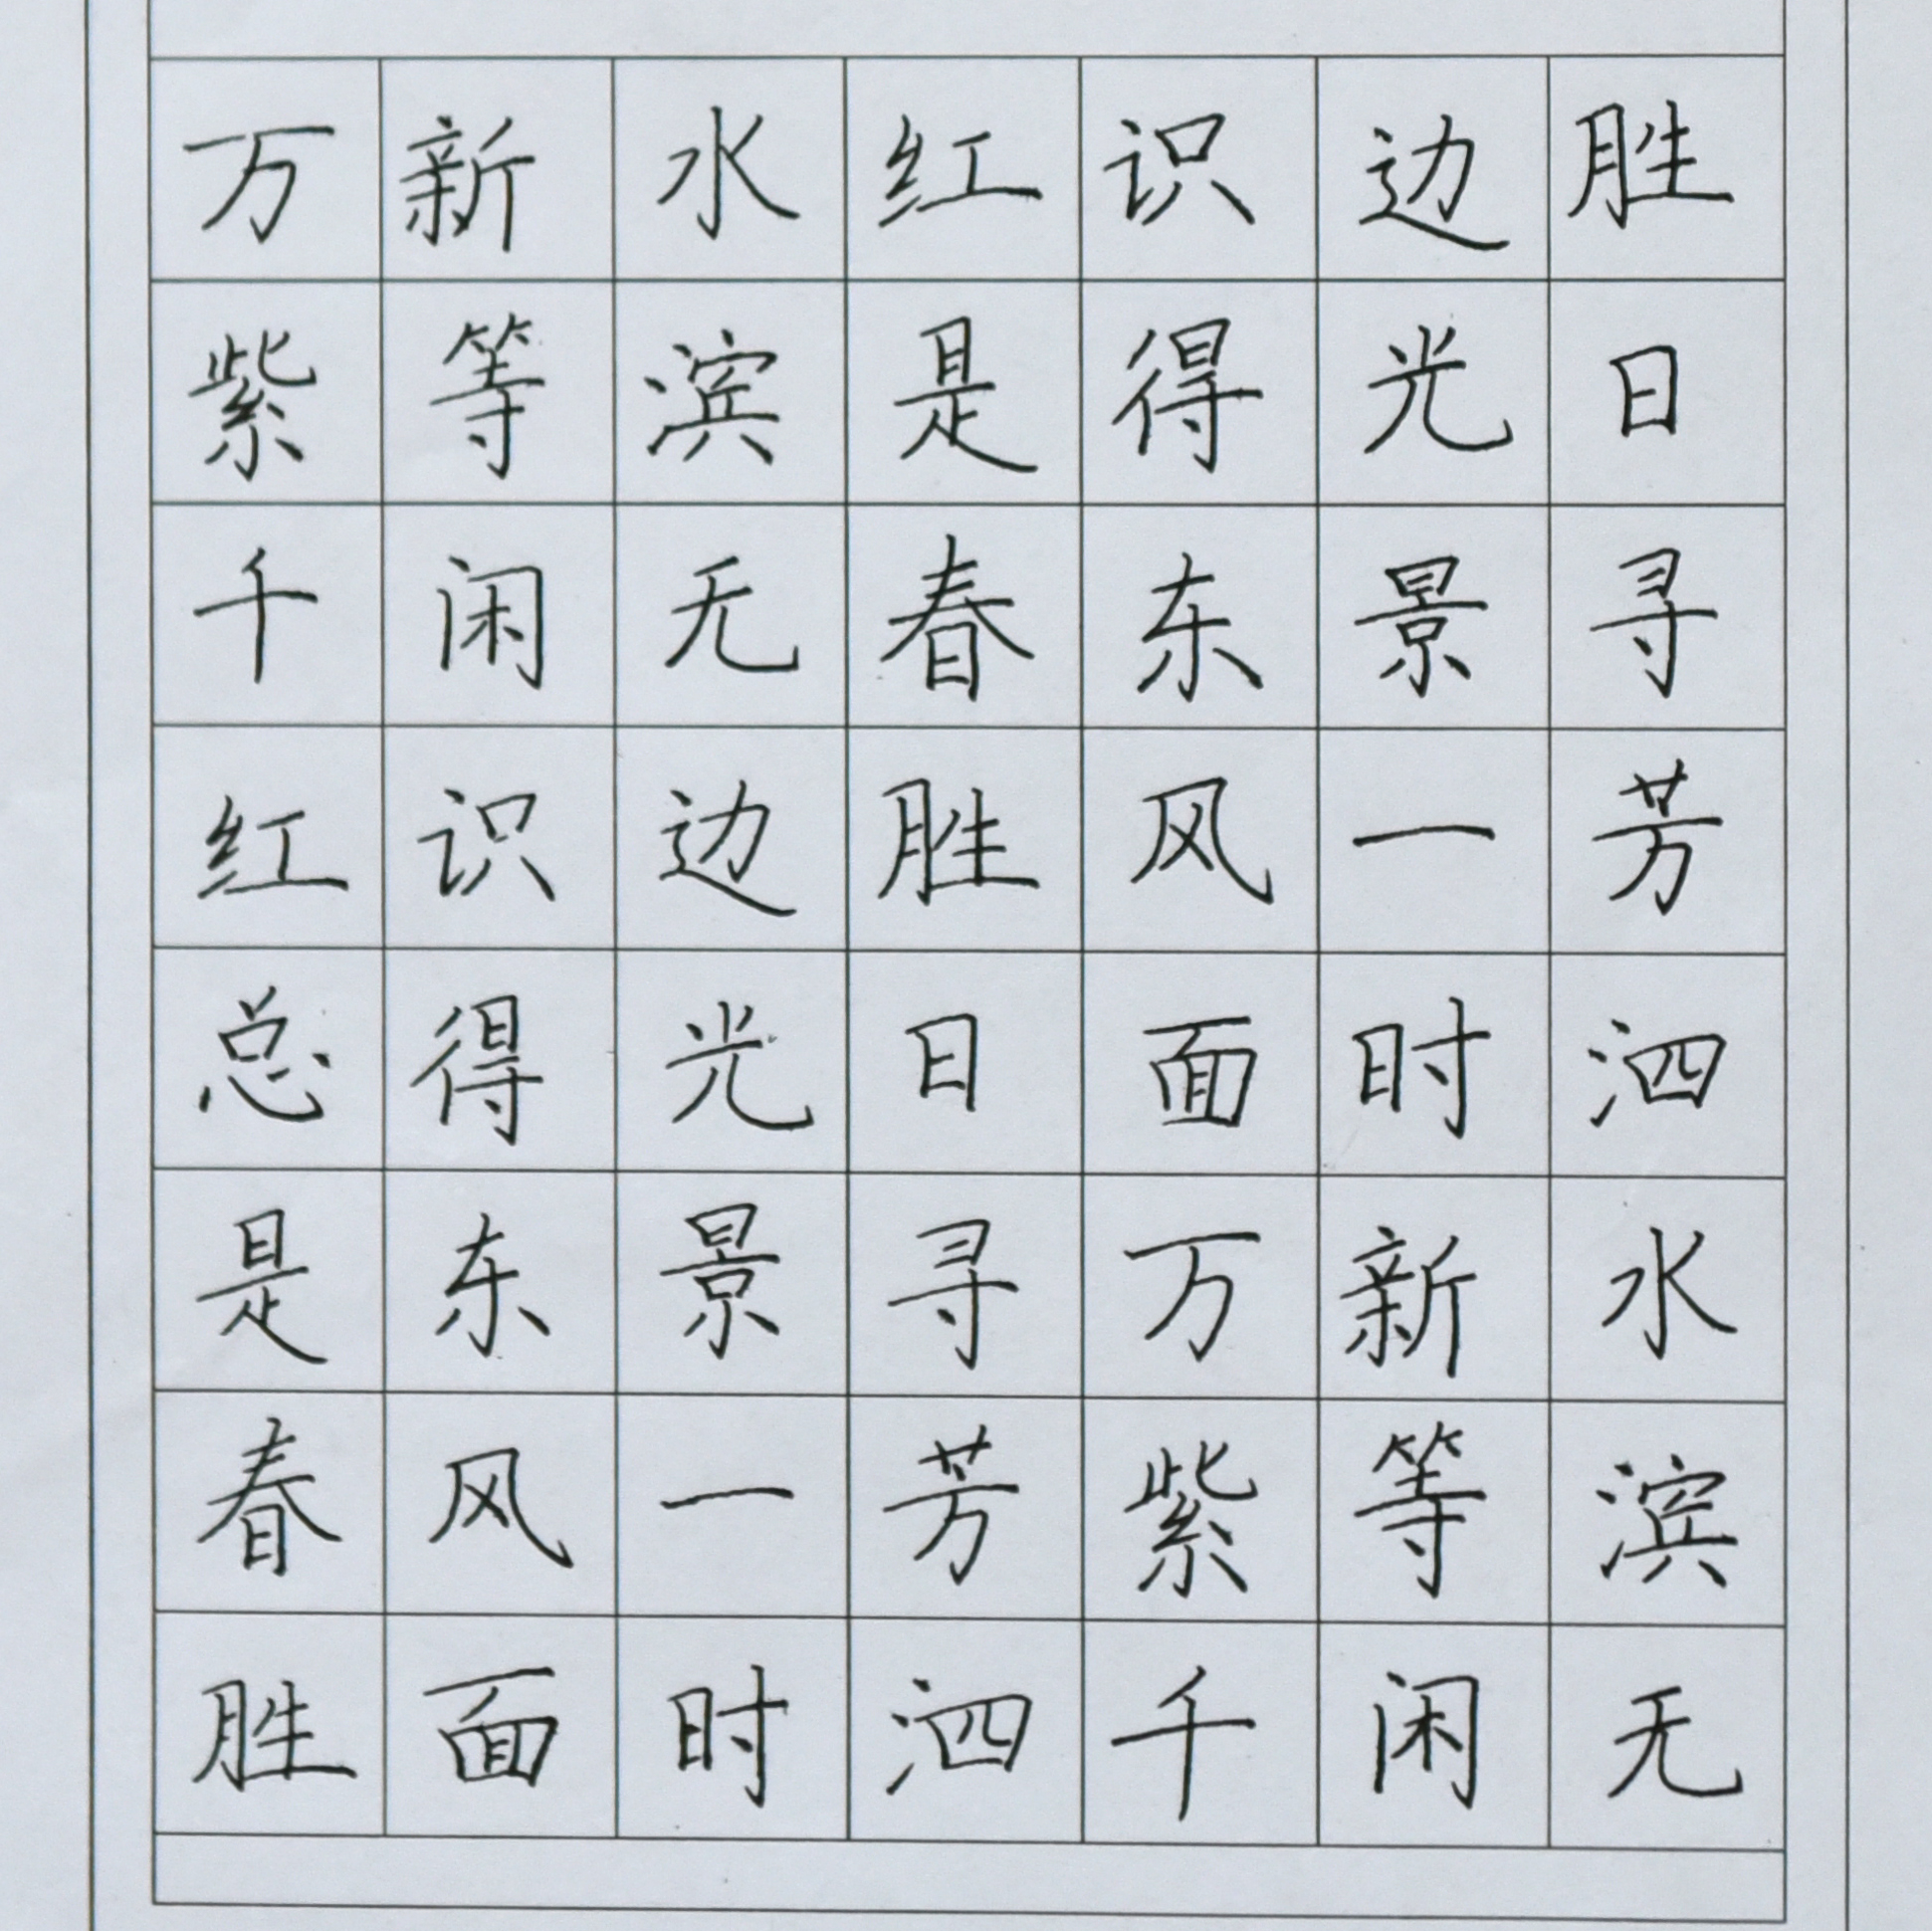 胜日寻芳泗水滨无
边光景一时新等闲
识得东风面万紫千
红是春胜日寻芳泗
水滨无边光景一时
新等闲识得东风面
万紫千红总是春胜